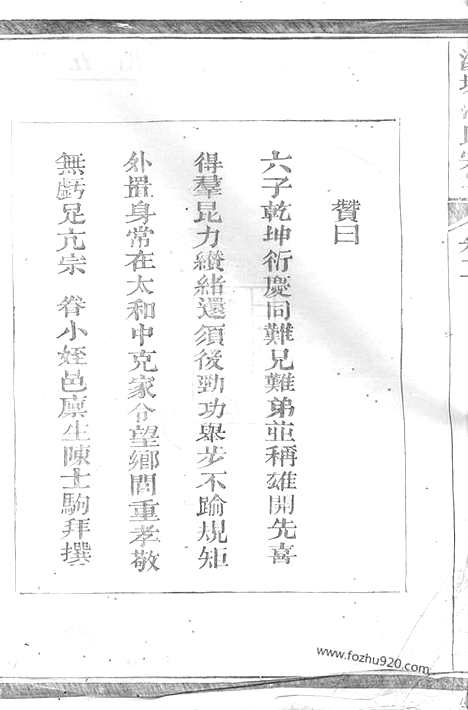 贊曰
六子乾坤衍慶同難兄難弟並稱雄開先喜
得羣昆力纘緒還須後勁功舉步不踰規矩
外置身常在太和中克家令望鄉閭重孝敬
無虧足亢宗　眷小姪邑廩生陳士駒拜撰
www.fozhu920.com